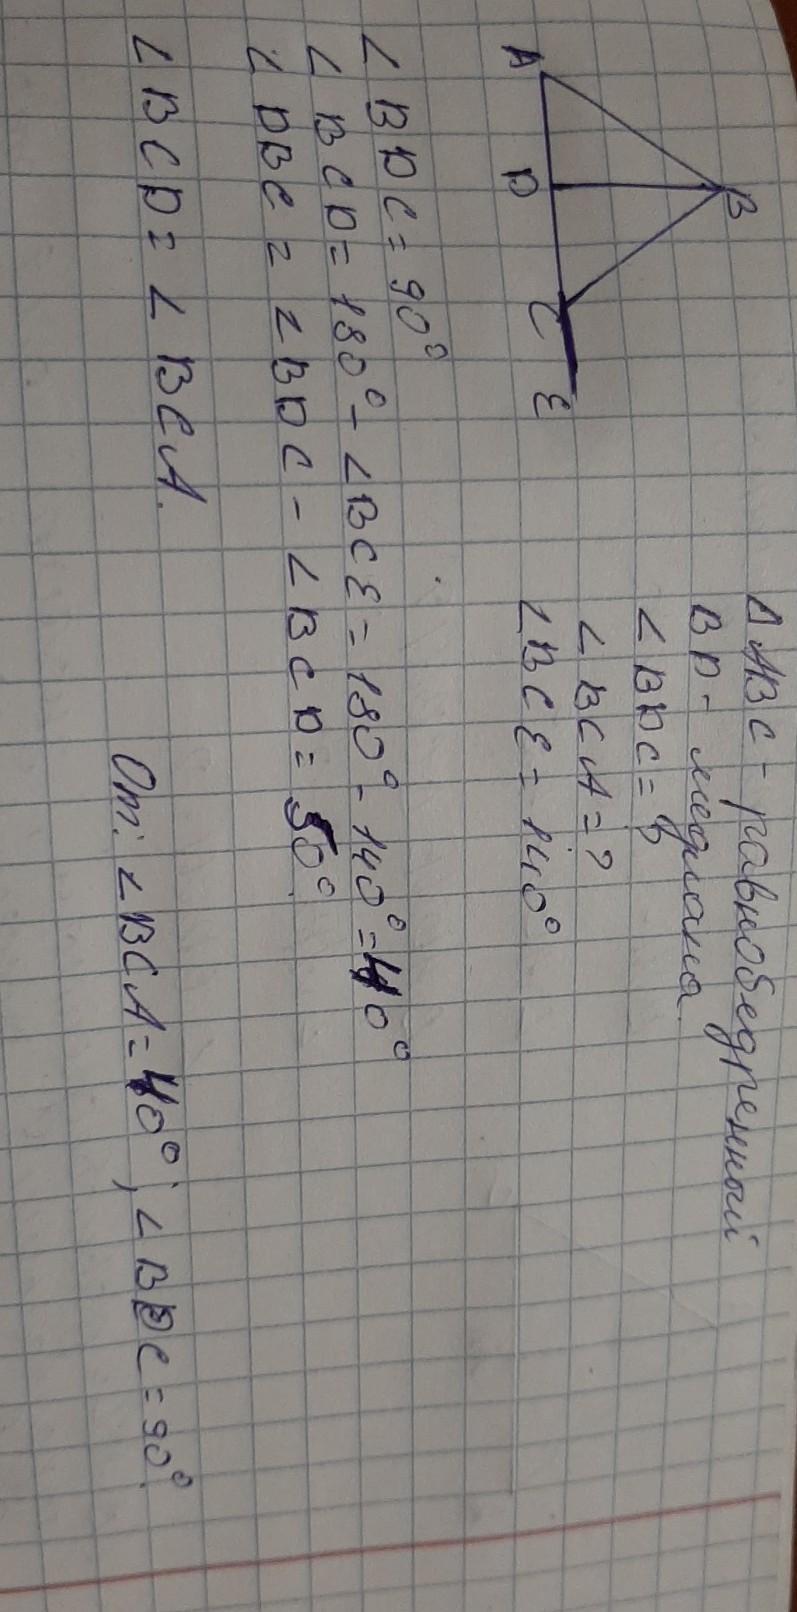 B
A
D
C
E
Δ ABC - равнобедренный
BD - медиана.
∠BDC = ?
∠BCA = ?
∠BCE = 140°
∠BDC = 90°
∠BCD = 180° - ∠BCE = 180° - 140° = 40°
∠DBC = ∠BDC - ∠BCD = 50°.
∠BCD = ∠BCA.
От: ∠BCA = 40°; ∠BDC = 90°.